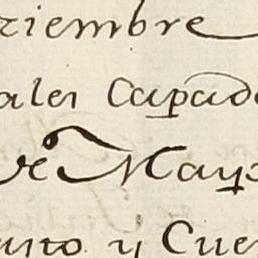 ziembre
ales Capade
de Mayo
usto y Cue